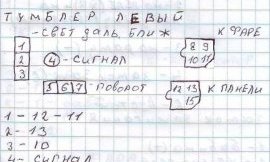 ТУМБЛЕР ЛЕВЫЙ
-СВЕТ ДАЛЬ, БЛИЖ
К ФАРЕ
1
2
3
4 -СИГНАЛ
8 9
10 11
5 6 7 - ПОВОРОТ
12 13
15
К ПАНЕЛИ
1-12-11
2-13
3-10
4- СИГНАЛ